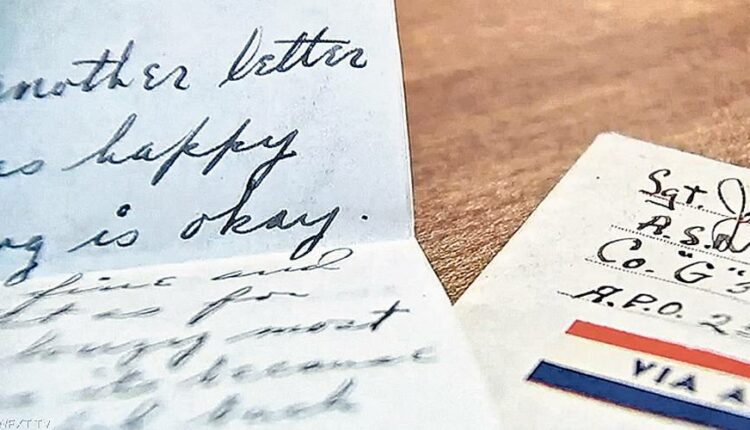 another letter
as happy
is okay.
fine and
as for
lousy most
its because
back
Sgt. J
A.S.
Co. "G"
A.P.O. 2
VIA A
WEXT TV